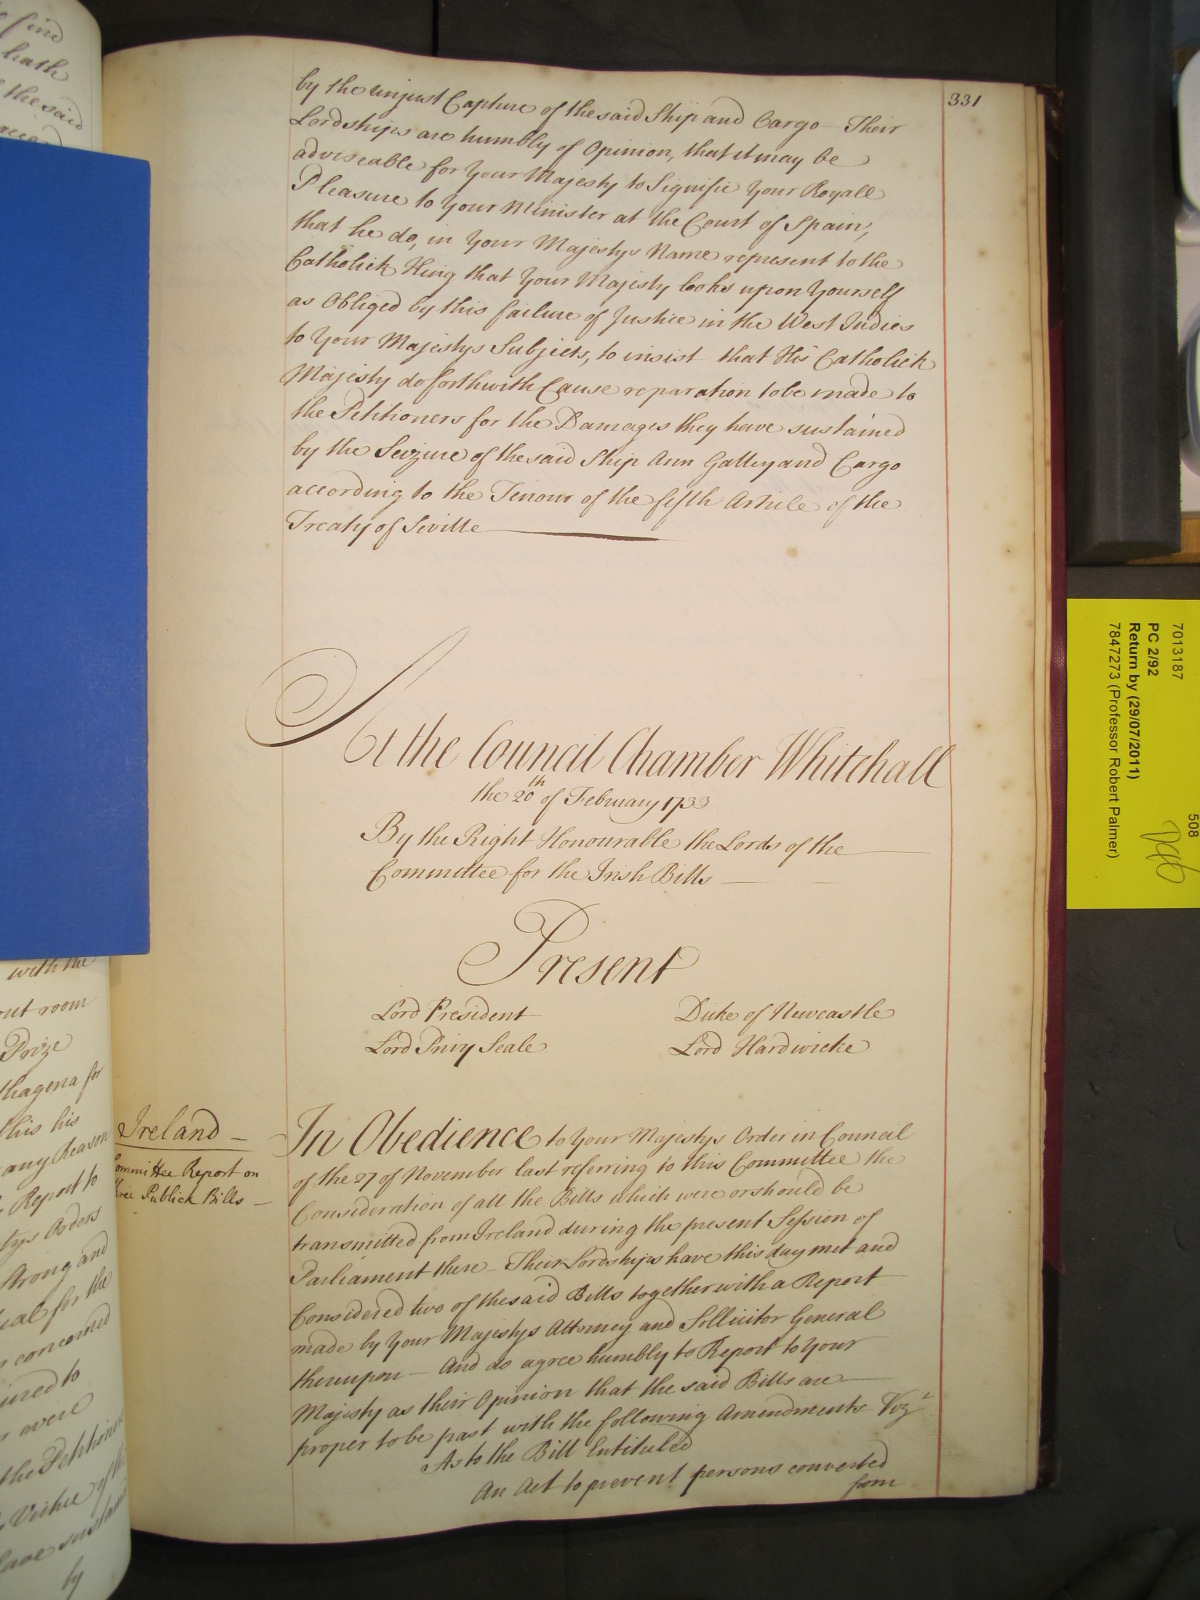 331
by the unjust Capture of the said Ship and Cargo – Their
Lordships are humbly of Opinion, that it may be
adviseable for Your Majesty to Signifie Your Royall
Pleasure to Your Minister at the Court of Spain,
that he do, in Your Majestys Name represent to the
Catholick King that Your Majesty looks upon Yourself
as Obliged by this failure of Justice in the West Indies
to Your Majestys Subjects, to insist that His Catholick
Majesty do forthwith Cause reparation to be made to
the Petitioners for the Damages they have sustained
by the Seizure of the said Ship Ann Galley and Cargo
according to the Tenour of the fifth Article of the
Treaty of Seville
At the Council Chamber Whitehall
the 20th of February 1733
By the Right Honourable the Lords of the
Committee for the Irish Bills
Present
Lord President Duke of Newcastle
Lord Privy Seale Lord Hardwicke
Ireland –
Committee Report on
three Publick Bills –
In Obedience to Your Majestys Order in Council
of the 27 of November last referring to this Committee the
Consideration of all the Bills which were or should be
transmitted from Ireland during the present Session of
Parliament there – Their Lordships have this day met and
Considered two of the said Bills together with a Report
made by Your Majestys Attorney and Sollicitor General
thereupon – And do agree humbly to Report to Your
Majesty as their Opinion that the said Bills are
proper to be past with the following Amendments Vizt
As to the Bill Entituled
An Act to prevent persons converted
from
find
hath
the said
with the
out room
Prize
thagena for
this his
any Reason
Report to
tys Orders
strong and
ial for the
concerned
ined to
were
the Petitione
Virtue of the
have sustain
by
7013187
PC 2/92
Return by (29/07/2011)
7847273 (Professor Robert Palmer)
508